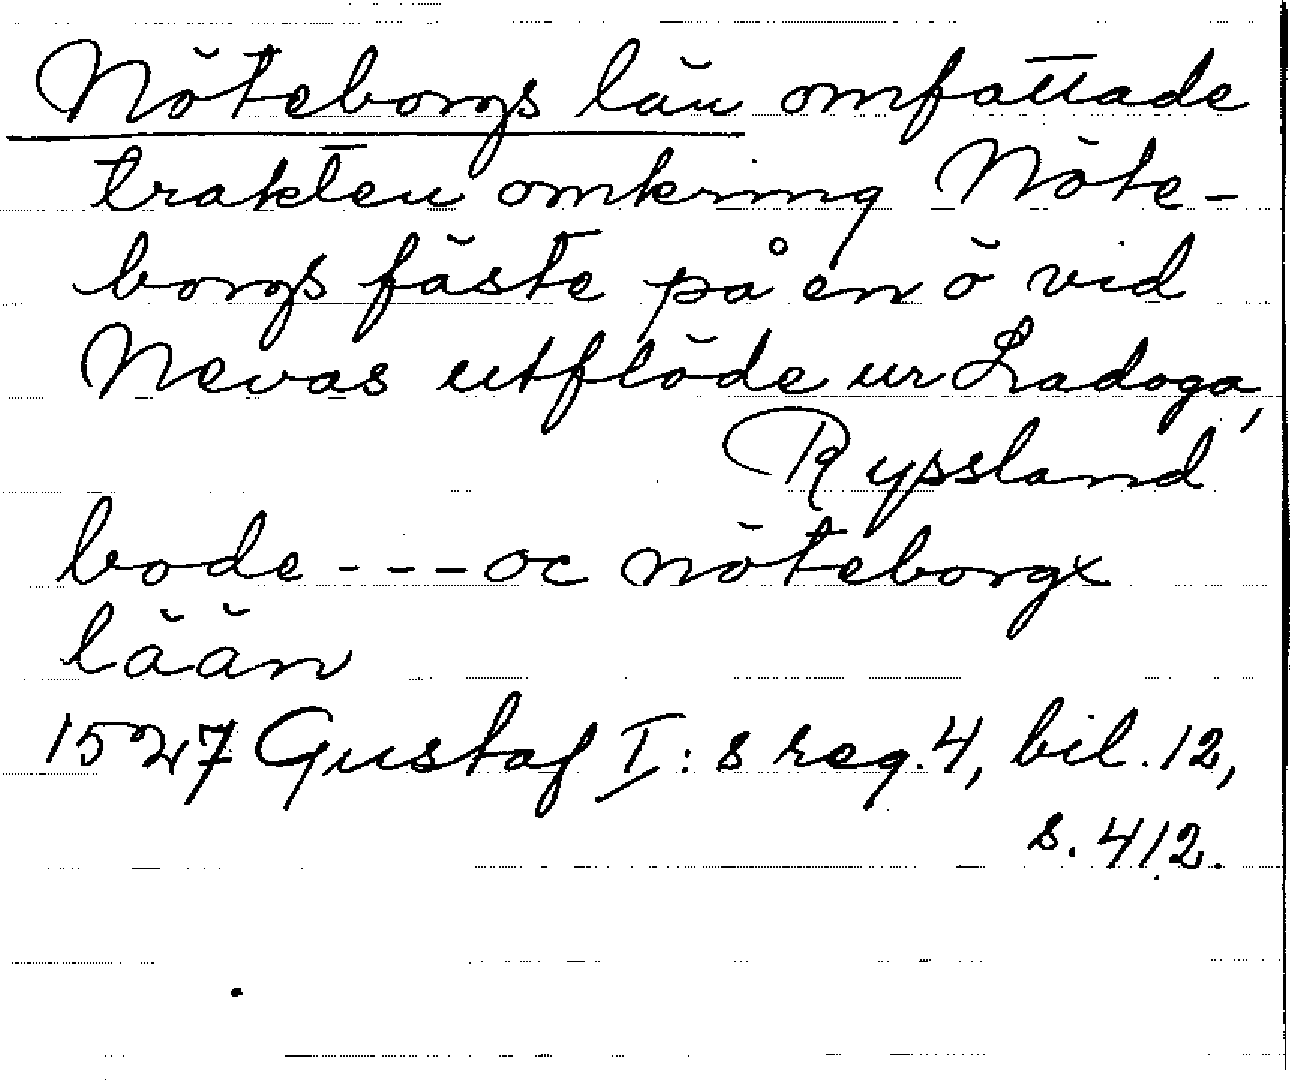 Nöteborgs län omfattade
trakten omkring Nöte-
borgs fäste på en ö vid
Nevas utflöde ur Ladoga,
Ryssland
bode --- oc nöteborgx
lään
1527 Gustaf I:s reg. 4, bil. 12,
s. 412.